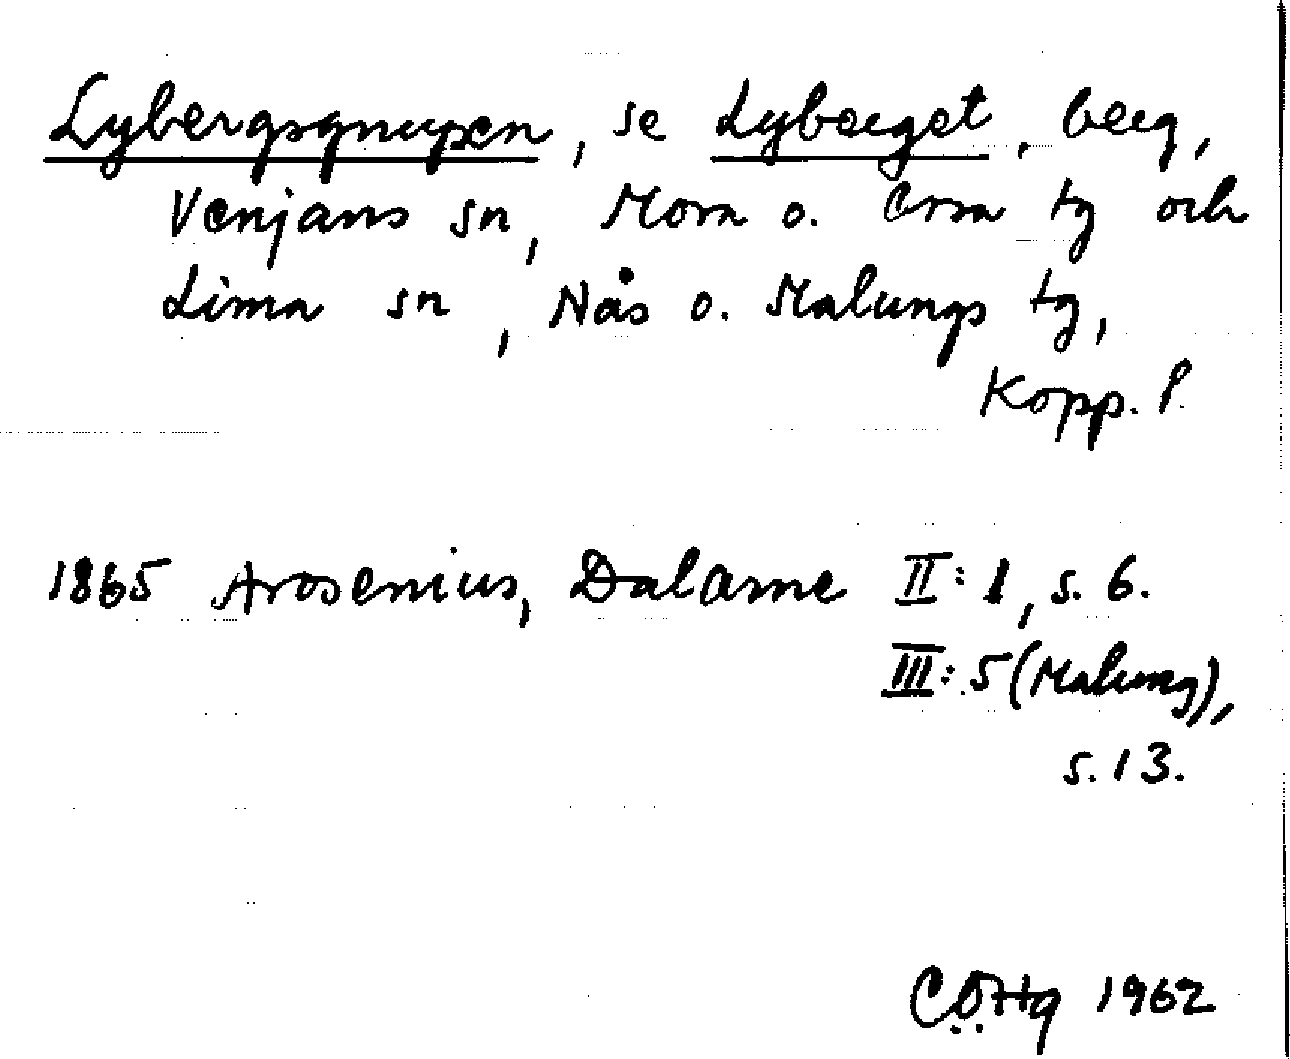 Lybergsgnupen, se Lyberget, berg,
Venjans sn, Mora o. Orsa tg och
Lima sn, Nås o. Malungs tg,
Kopp. l.
1865 Arosenius, Dalarne II:1, s. 6.
III:5 (Malung),
s. 13.
CÖHg 1962